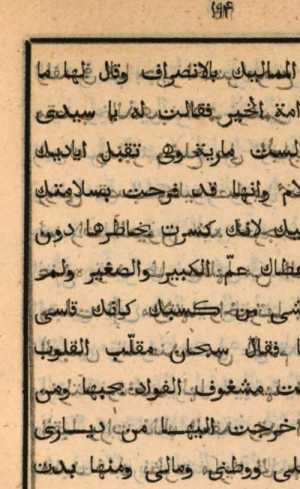 ١٩٤
المماليك بالانصراف وقال لها ما
امة الخير فقالت له يا سيدى
لست مارية وهى تقبل اياديك
وانها قد فرحت بسلامتك
لانك كسرت بخاطرها دون
عطاك عمّ الكبير والصغير ولم
من كسبك كانك قاسى
فقال سبحان مقلّب القلوب
مشغوف الفواد بحبها ومن
اخرجت اليها من ديارى
ووطنى ومالى ومنها بدت